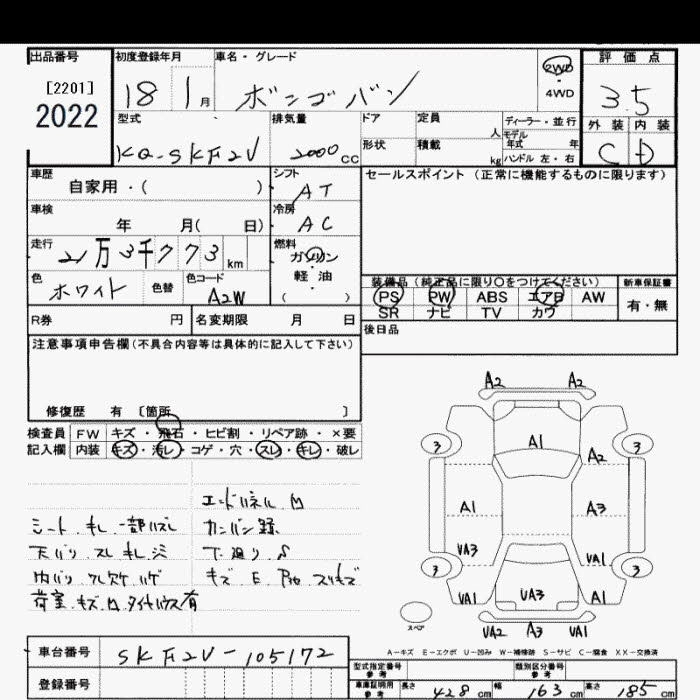 出品番号
[2201]
2022
初度登録年月
18 1 月
車名・グレード
ボンゴバン
2WD
・
4WD
評価点
3.5
外装 内装
C D
型式
KQ-SKF2V
排気量
2000 CC
ドア
定員
人
形状
積載
kg
ディーラー・並行
モデル
年式 年
ハンドル 左・右
車歴
自家用・( )
車検
年 月( 日)
走行
21万3千773 km
色
ホワイト
色替
色コード
A2W
シフト
AT
冷房
AC
燃料
ガソリン
・
軽・油
( )
セールスポイント (正常に機能するものに限ります)
装備品 (純正品に限り○をつけてください)
PS PW ABS エアB AW
SR ナビ TV カワ
新車保証書
有・無
後日品
R券 円 名変期限 月 日
注意事項申告欄 (不具合内容等は具体的に記入して下さい)
修復歴 有 〔箇所 〕
検査員
記入欄
FW キズ・飛石・ヒビ割・リペア跡・×要
内装 キズ・汚レ・コゲ・穴・スレ・キレ・破レ
シート キレ 一部ハズレ
天バリ スレ キレ シミ
荷室 キズ 凹 タイヤハウス有
エンドパネル 凹
カンバン跡
下廻り S
A2 A2
A1
3 3
A2
A1 A3
VA3 VA1
3 3
VA1 VA3 A1
スペア
VA2 A3 VA1
A-キズ E-エクボ U-凹み W-補修跡 S-サビ C-腐食 XX-交換済
車台番号
SKF2V-105172
登録番号
型式指定番号
参考
類別区分番号
参考
車庫証明用
参考
長さ 428 cm 幅 163 cm 高さ 185 cm